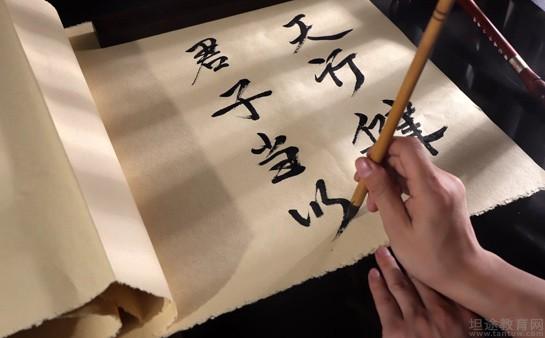 天行健
君子当以
坦途教育网
www.tantuw.com